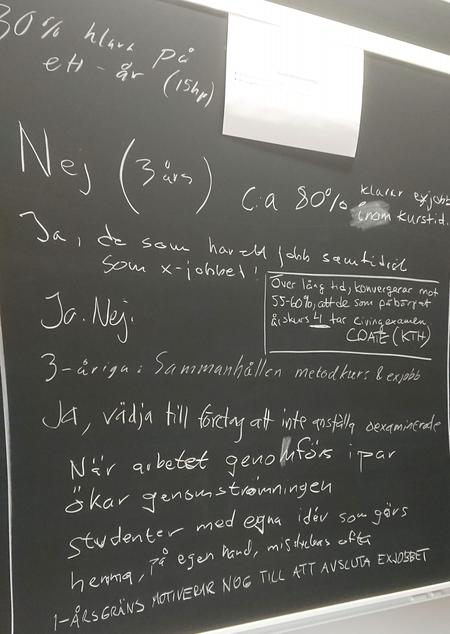 30% klara på
ett-år (15hp)
Nej (3 års)
C:a 80% klarar exjobb
inom kurstid.
Ja, de som har ett jobb samtidigt
som x-jobbet!
Över lång tid, konvergerar mot
55-60%, att de som påbörjat
årskurs 4 tar civingexamen
CDATE (KTH)
Ja. Nej.
3-åriga: Sammanhållen metodkurs & exjobb
JA, vädja till företag att inte anställa oexaminerade
När arbetet genomförs i par
ökar genomströmningen
studenter med egna idéer som görs
hemma, på egen hand, misslyckas ofta
1-ÅRSGRÄNS MOTIVERAR NOG TILL ATT AVSLUTA EXJOBBET